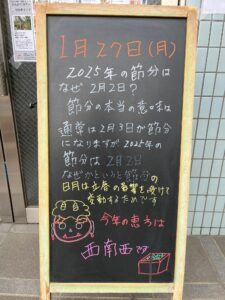 1月27日(月)
2025年の節分は
なぜ2月2日?
節分の本当の意味は
通常は2月3日が節分
になりますが2025年の
節分は2月2日
なぜかというと節分の
日月は立春の影響を受けて
変動するためです
今年の恵方は
西南西です